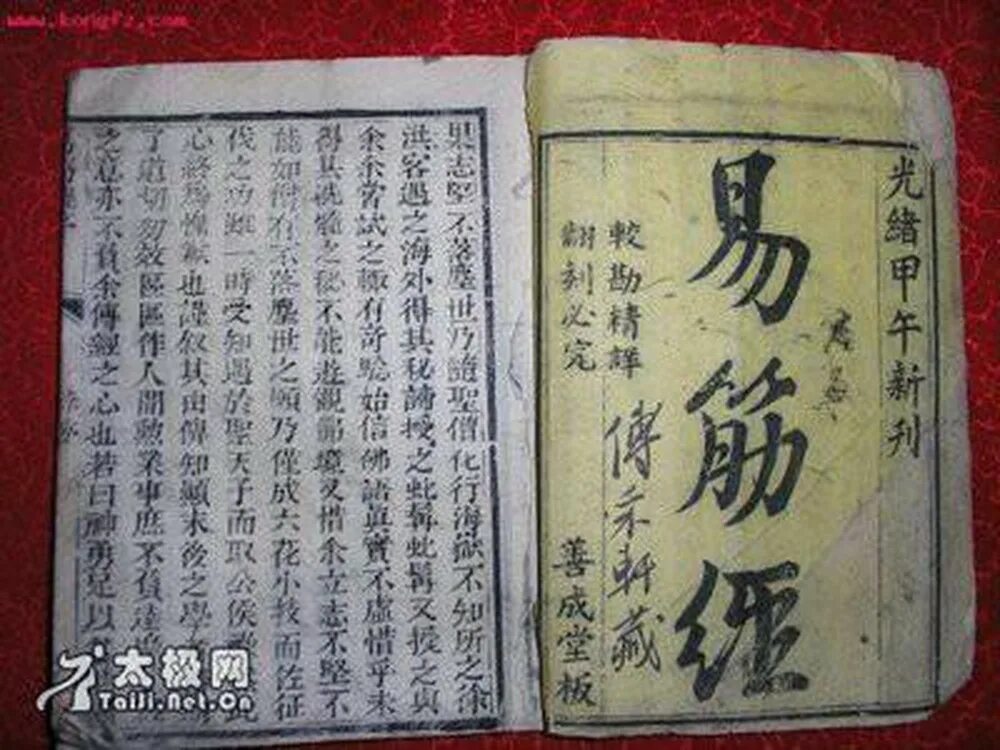 www.kongfz.com
光緒甲午新刊
易筋經
較勘精詳
翻刻必究
軒藏
善成堂板
果志堅不落塵世乃隨聖僧化行海嶽不知所之徐
洪客遇之海外得其秘諦授之虬髯虬髯又授之
余余嘗試之輒有奇驗始信佛語眞實不虛惜乎未
得其洗髓之秘不能遊觀佛境又惜余立志不堅不
能如僧有不落塵世之願乃僅成六花小技而佐征
伐之功雖一時受知遇於聖天子而取公侯
心終爲愧歉也謹叙其由俾知顛末後之學
了道切勿效區區作人間勳業事庶不負達摩
之意亦不負余傳經之心也若曰神勇足以
太极网
Taiji.net.Cn